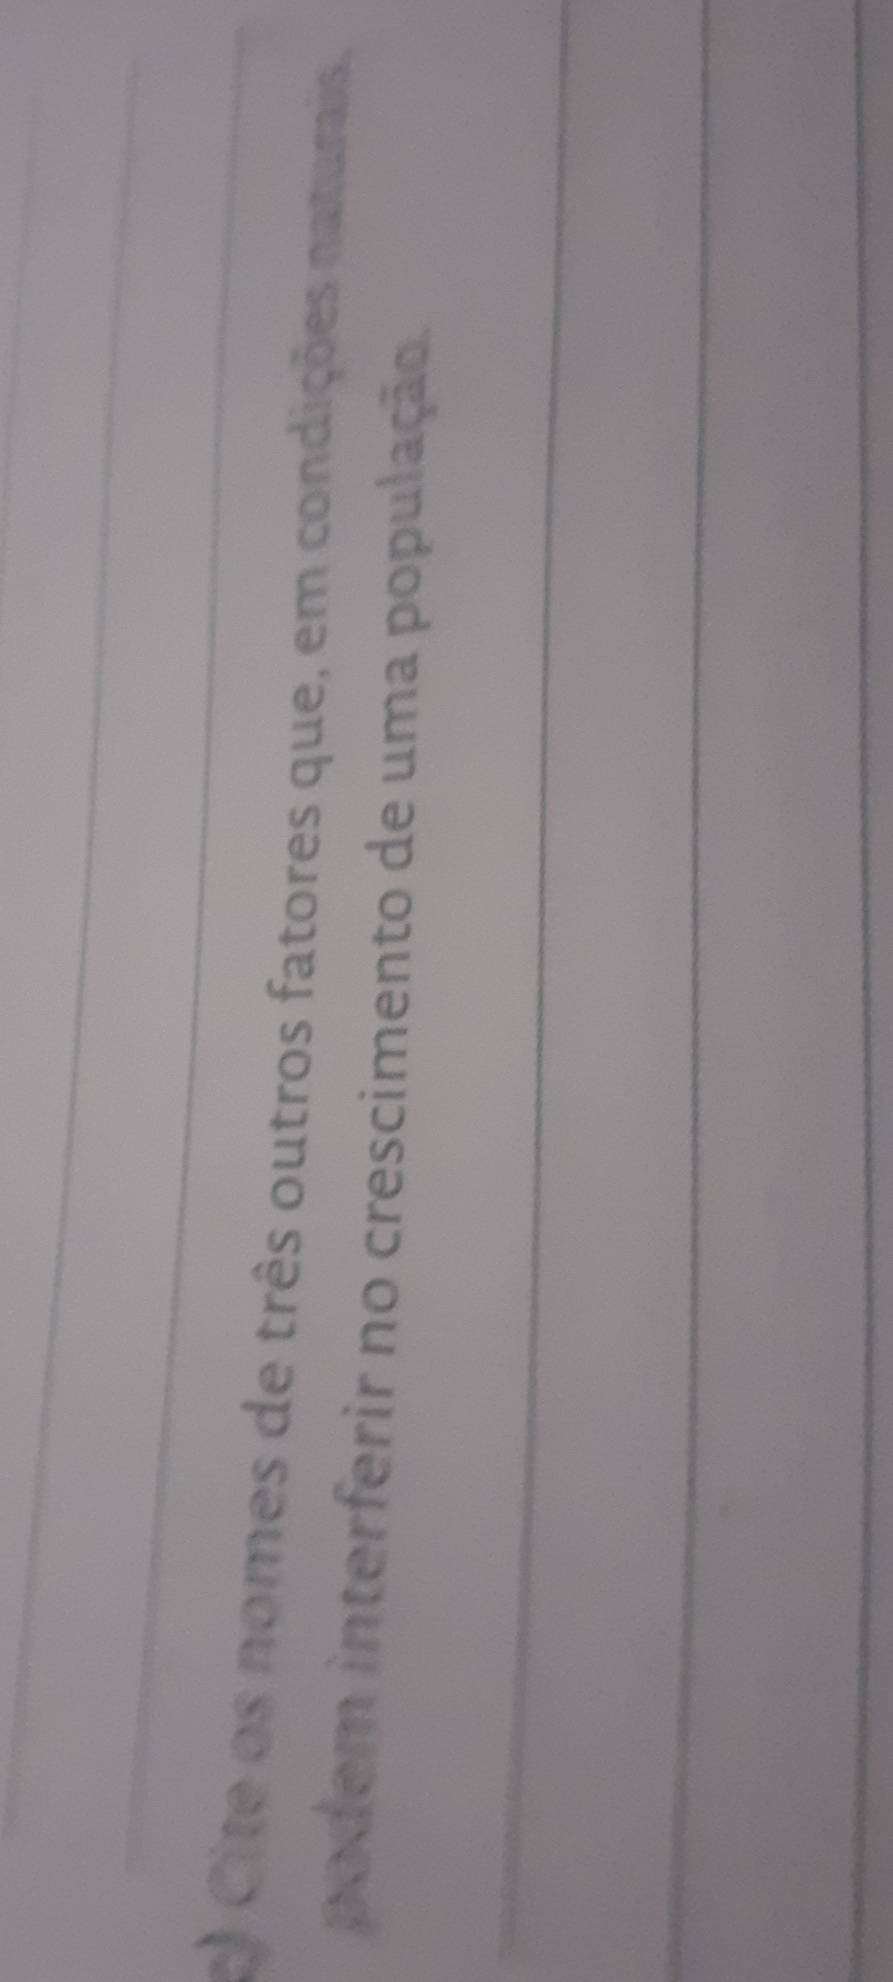 c) Cite os nomes de três outros fatores que, em condições naturais,
podem interferir no crescimento de uma população.